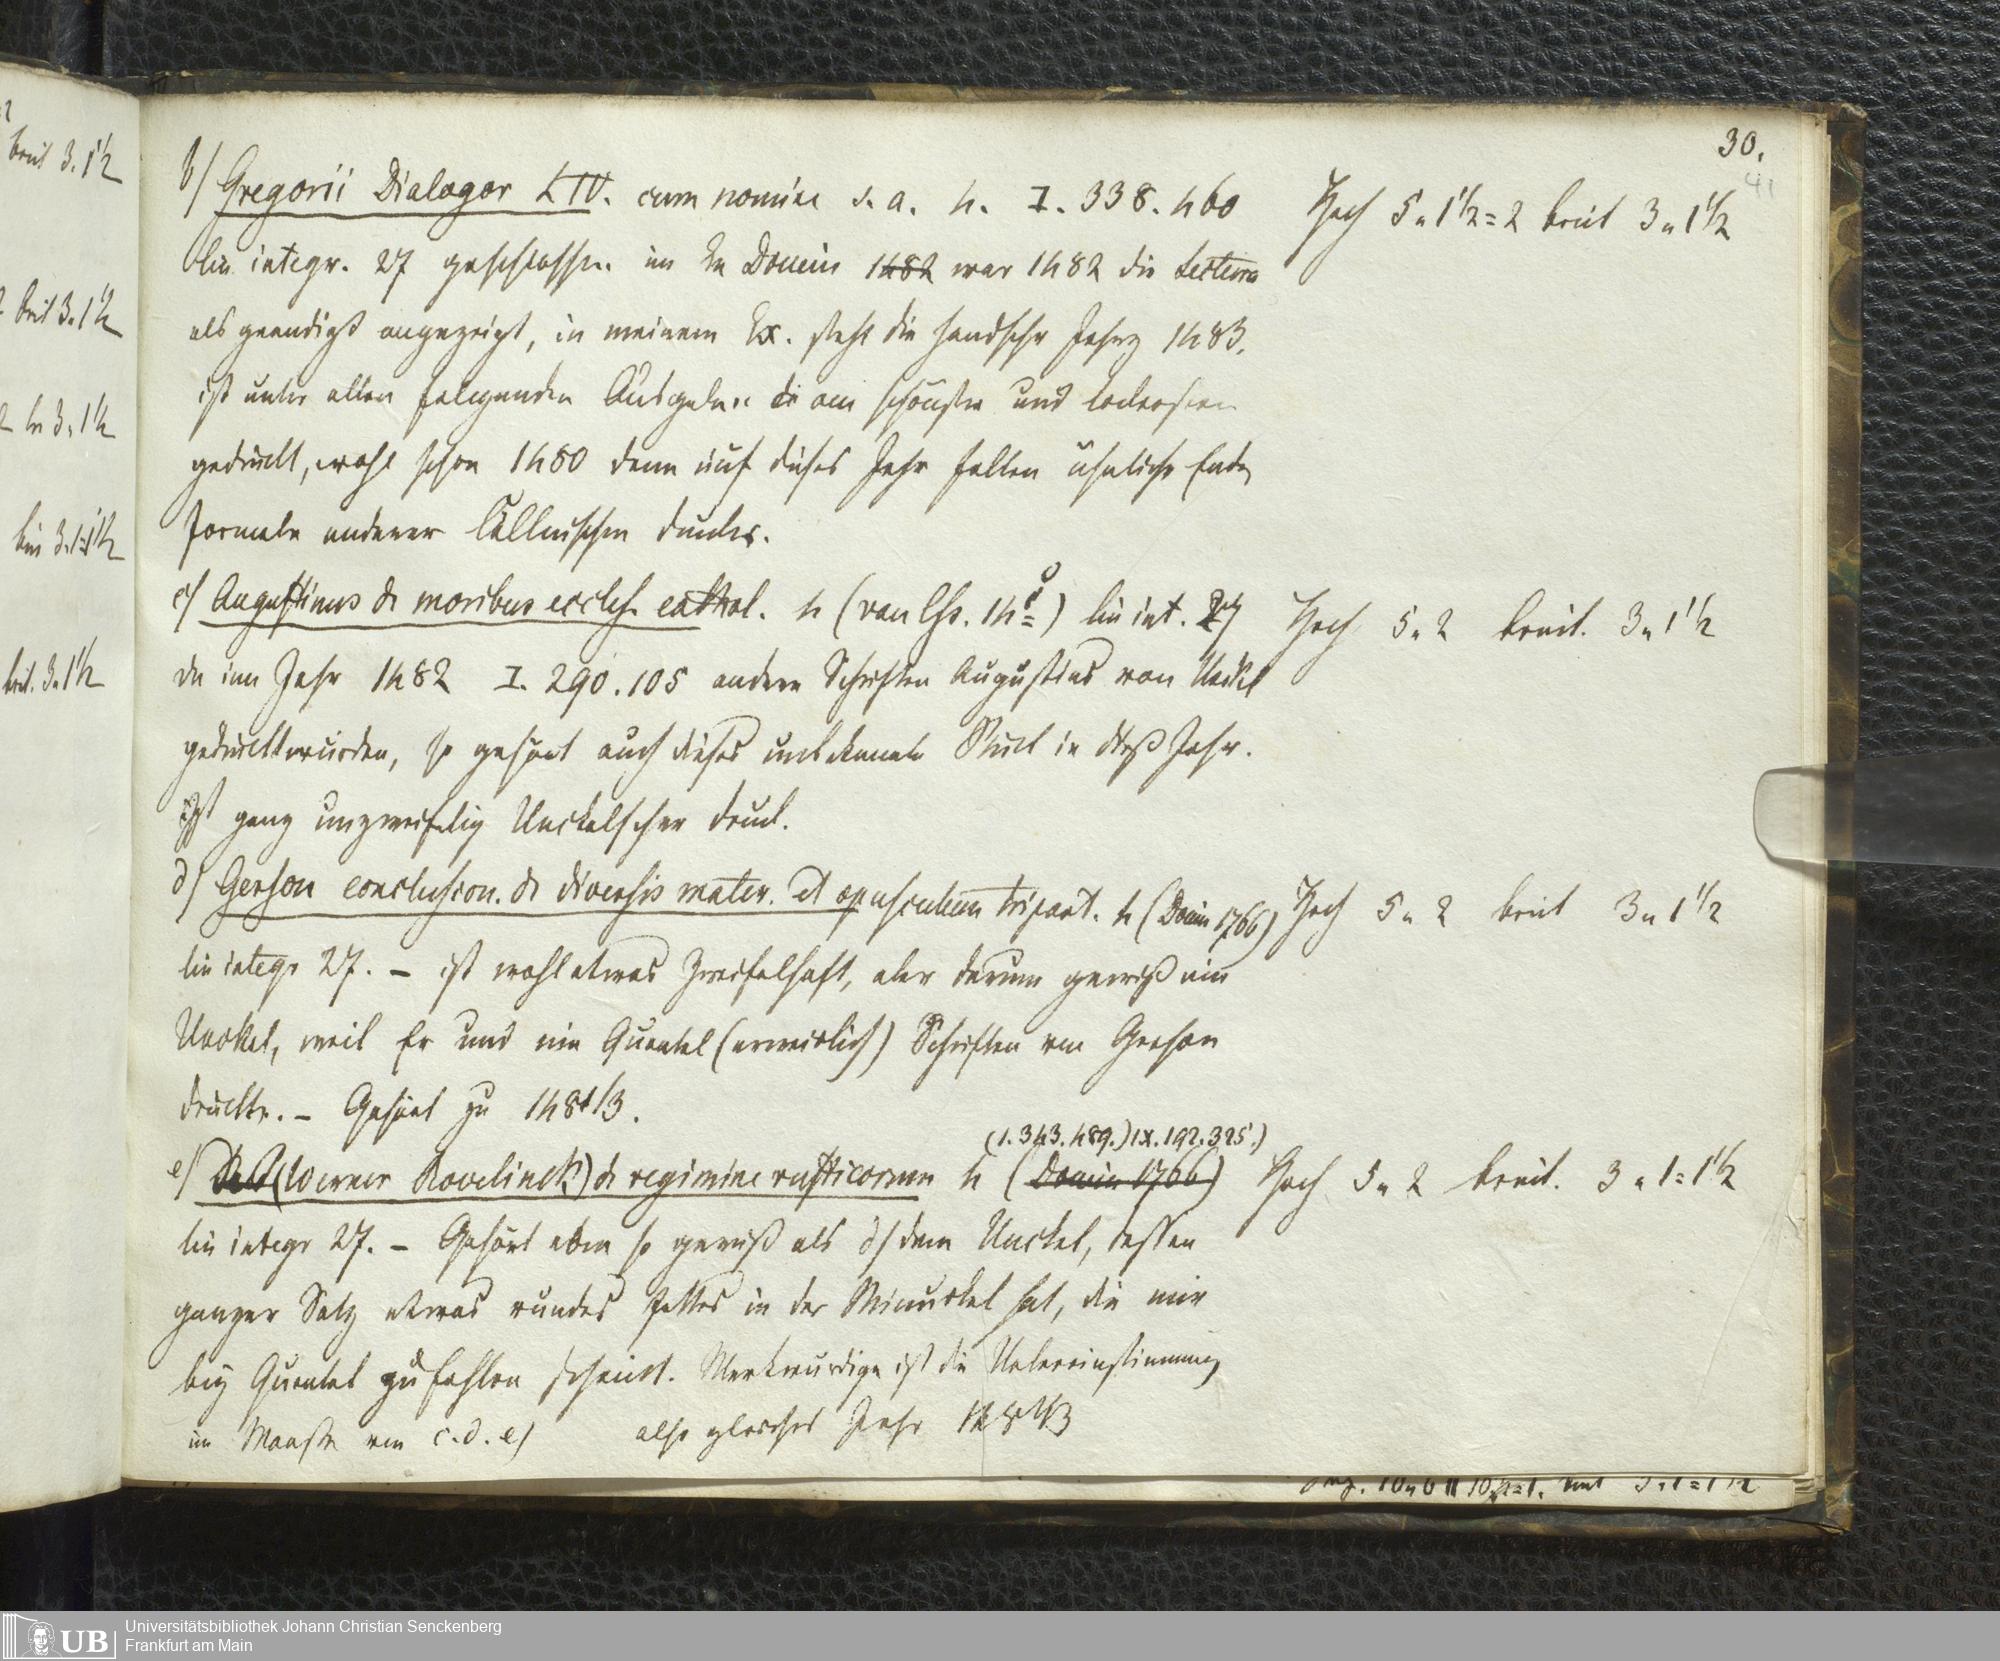 30.
41
b) Gregorii Dialogor L IV. cum nomine s. a. 4. I. 338. 460 Hoch 5 „ 1½ = 2 breit 3 „ 1½
lin. integr. 27 geschlossen. im Ex Domin 1482 war 1482 die Lectura
als geendigt angezeigt, in meinem Ex. steht die handschr Jahrz 1483.
ist unter allen folgenden Ausgaben die am schönsten und
gedruckt, wohl schon 1480 denn auf dieses Jahr fallen ähnliche End
formeln anderer Cöllnischen Drucke.
c) Augustinus de moribus eccles. cathol. 4 (van Chs. 14) lin int. 27 Hoch 5 „ 2 breit. 3 „ 1½
da im Jahr 1482 I. 290. 105 andere Schriften Augustins von Unckel
gedruckt wurden, so gehört auch dieses unbekannte Stück in dieß Jahr.
Ist ganz unzweifelig Unckelscher Druck.
d) Gerson conclusion. de diversis mater. et opusculum tripart. 4 (Domin 1766) Hoch 5 „ 2 breit 3 „ 1½
lin integr 27. – ist wohl etwas zweifelhaft, aber darum gewiß ein
Unckel, weil Er und nie Quentel (erweislich) Schriften von Gerson
druckte. – Gehört zu 1481/3.
(1. 343. 489.) IX. 192. 325.)
e) (Werner Rovelinck) de regimine rusticorum 4 (Domin 1766) Hoch 5 „ 2 breit. 3 „ 1 = 1½
lin integr 27. – Gehört eben so gewiß als d) dem Unckel, dessen
ganzer Satz etwas rundes fettes in der Minuskel hat, die mir
bey Quentel zu fehlen scheint. Merkwürdige ist die Uebereinstimmung
im Maaße von c. d. e) also gleiches Jahr 1482/3
breit 3. 1½
breit 3. 1½
br 3. 1½
breit 3. 1=1½
breit. 3. 1½
Universitätsbibliothek Johann Christian Senckenberg
Frankfurt am Main
UB